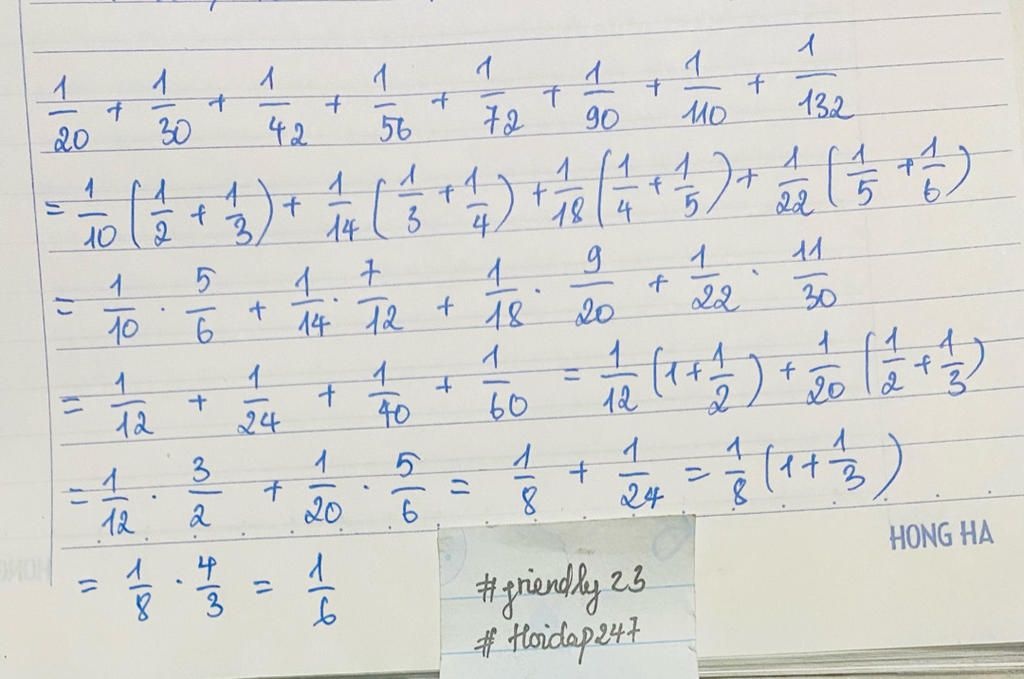 1/20 + 1/30 + 1/42 + 1/56 + 1/72 + 1/90 + 1/110 + 1/132
= 1/10 (1/2 + 1/3) + 1/14 (1/3 + 1/4) + 1/18 (1/4 + 1/5) + 1/22 (1/5 + 1/6)
= 1/10 . 5/6 + 1/14 . 7/12 + 1/18 . 9/20 + 1/22 . 11/30
= 1/12 + 1/24 + 1/40 + 1/60 = 1/12 (1 + 1/2) + 1/20 (1/2 + 1/3)
= 1/12 . 3/2 + 1/20 . 5/6 = 1/8 + 1/24 = 1/8 (1 + 1/3)
HONG HA
= 1/8 . 4/3 = 1/6
#friendly23
#Hoidap247